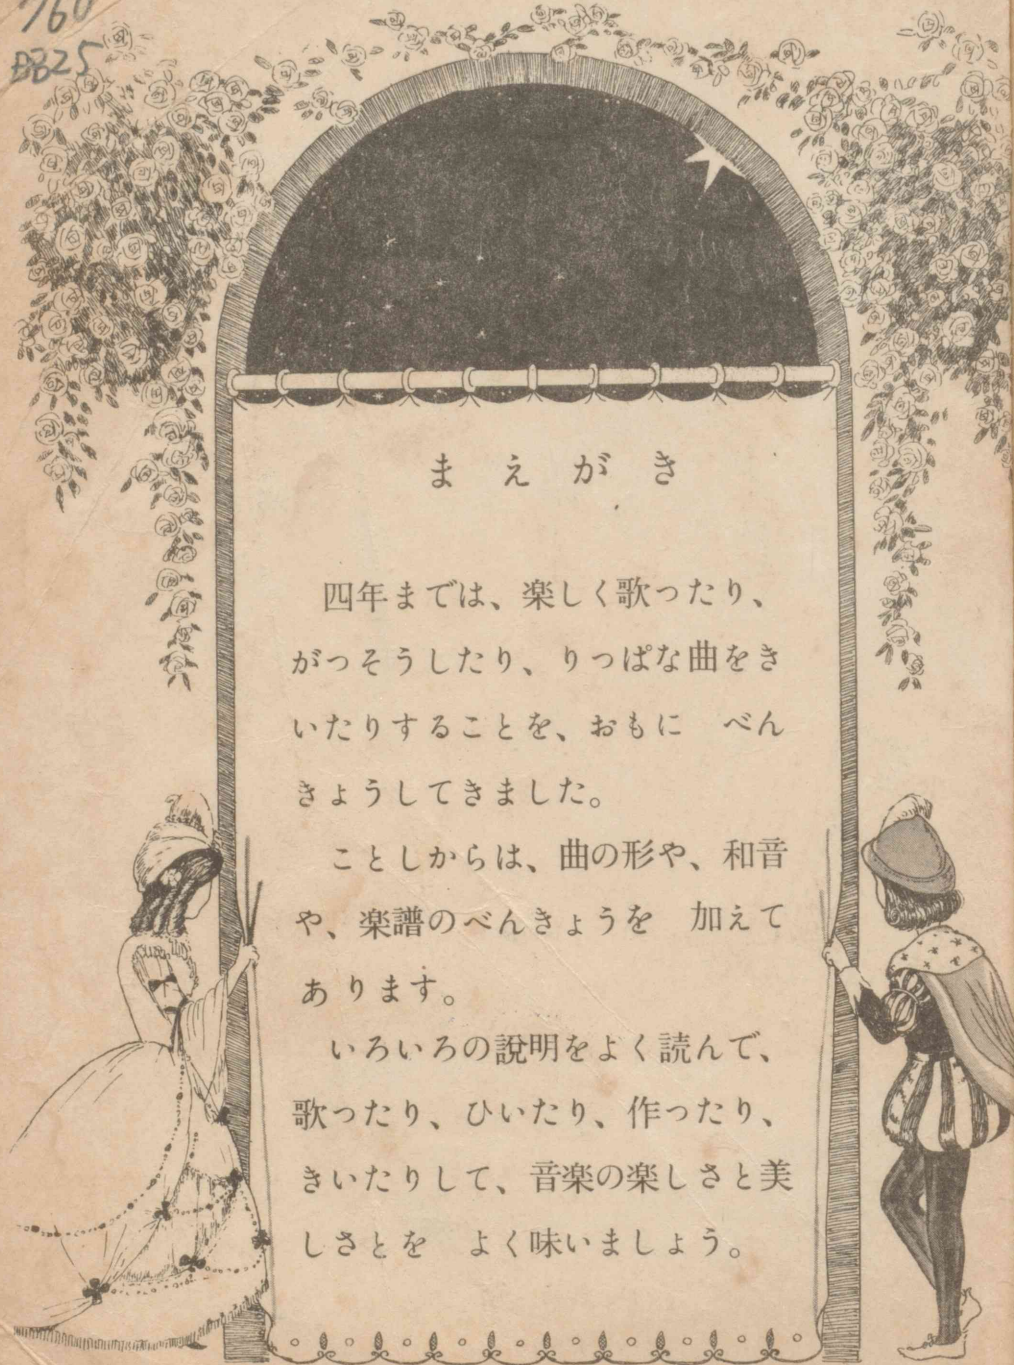 760
BB25
まえがき
四年までは、楽しく歌ったり、
がっそうしたり、りっぱな曲をき
いたりすることを、おもに　べん
きょうしてきました。
ことしからは、曲の形や、和音
や、楽譜のべんきょうを　加えて
あります。
いろいろの說明をよく読んで、
歌ったり、ひいたり、作ったり、
きいたりして、音楽の楽しさと美
しさとを　よく味いましょう。